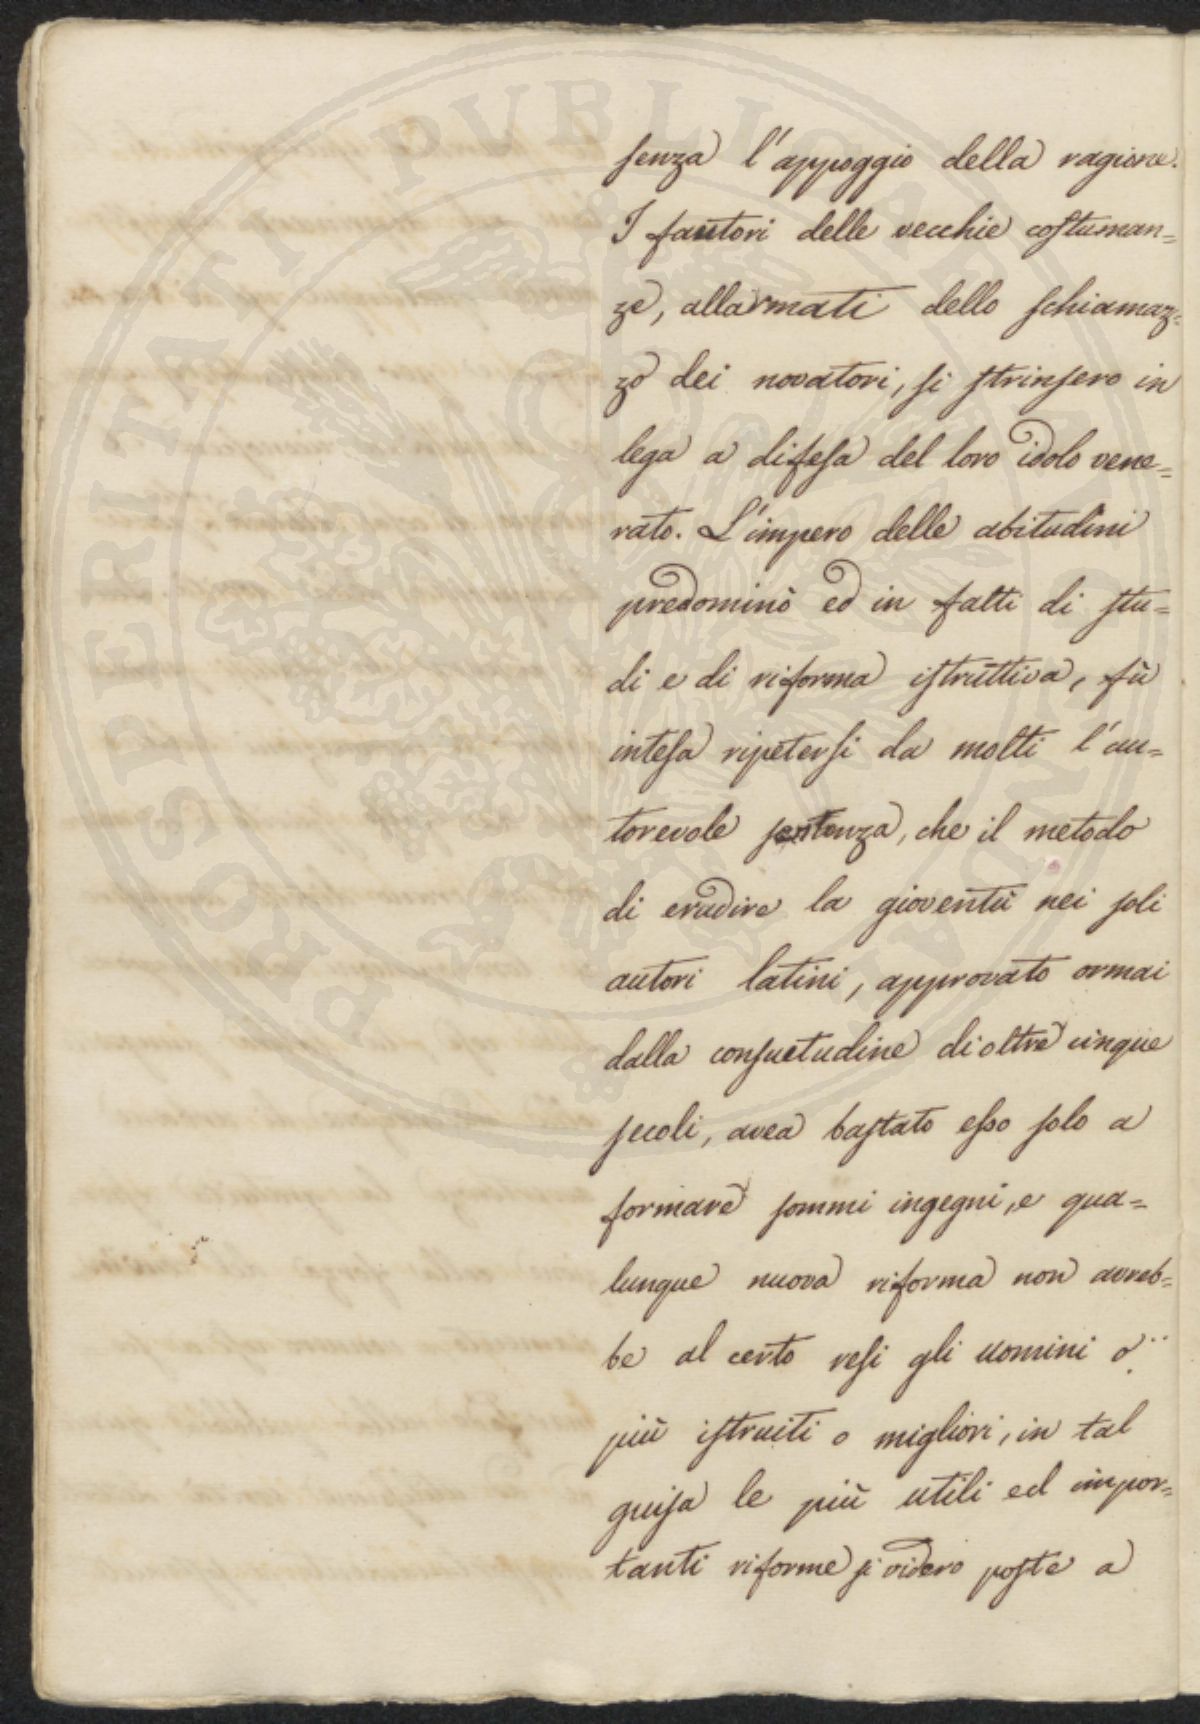 senza l'appoggio della ragione.
I fautori delle vecchie costuman=
ze, allarmati dello schiamaz=
zo dei novatori, si strinsero in
lega a difesa del loro idolo vene=
rato. L'impero delle abitudini
predominò ed in fatti di stu=
di e di riforma istruttiva, fù
intesa ripetersi da molti l'au=
torevole sentenza, che il metodo
di erudire la gioventù nei soli
autori latini, approvato ormai
dalla consuetudine di oltre cinque
secoli, avea bastato esso solo a
formare sommi ingegni, e qua=
lunque nuova riforma non avreb=
be al certo resi gli uomini o
più istruiti o migliori, in tal
guisa le più utili ed impor=
tanti riforme si videro poste a
PROSPERITATI PUBLICAE AUGENDAE